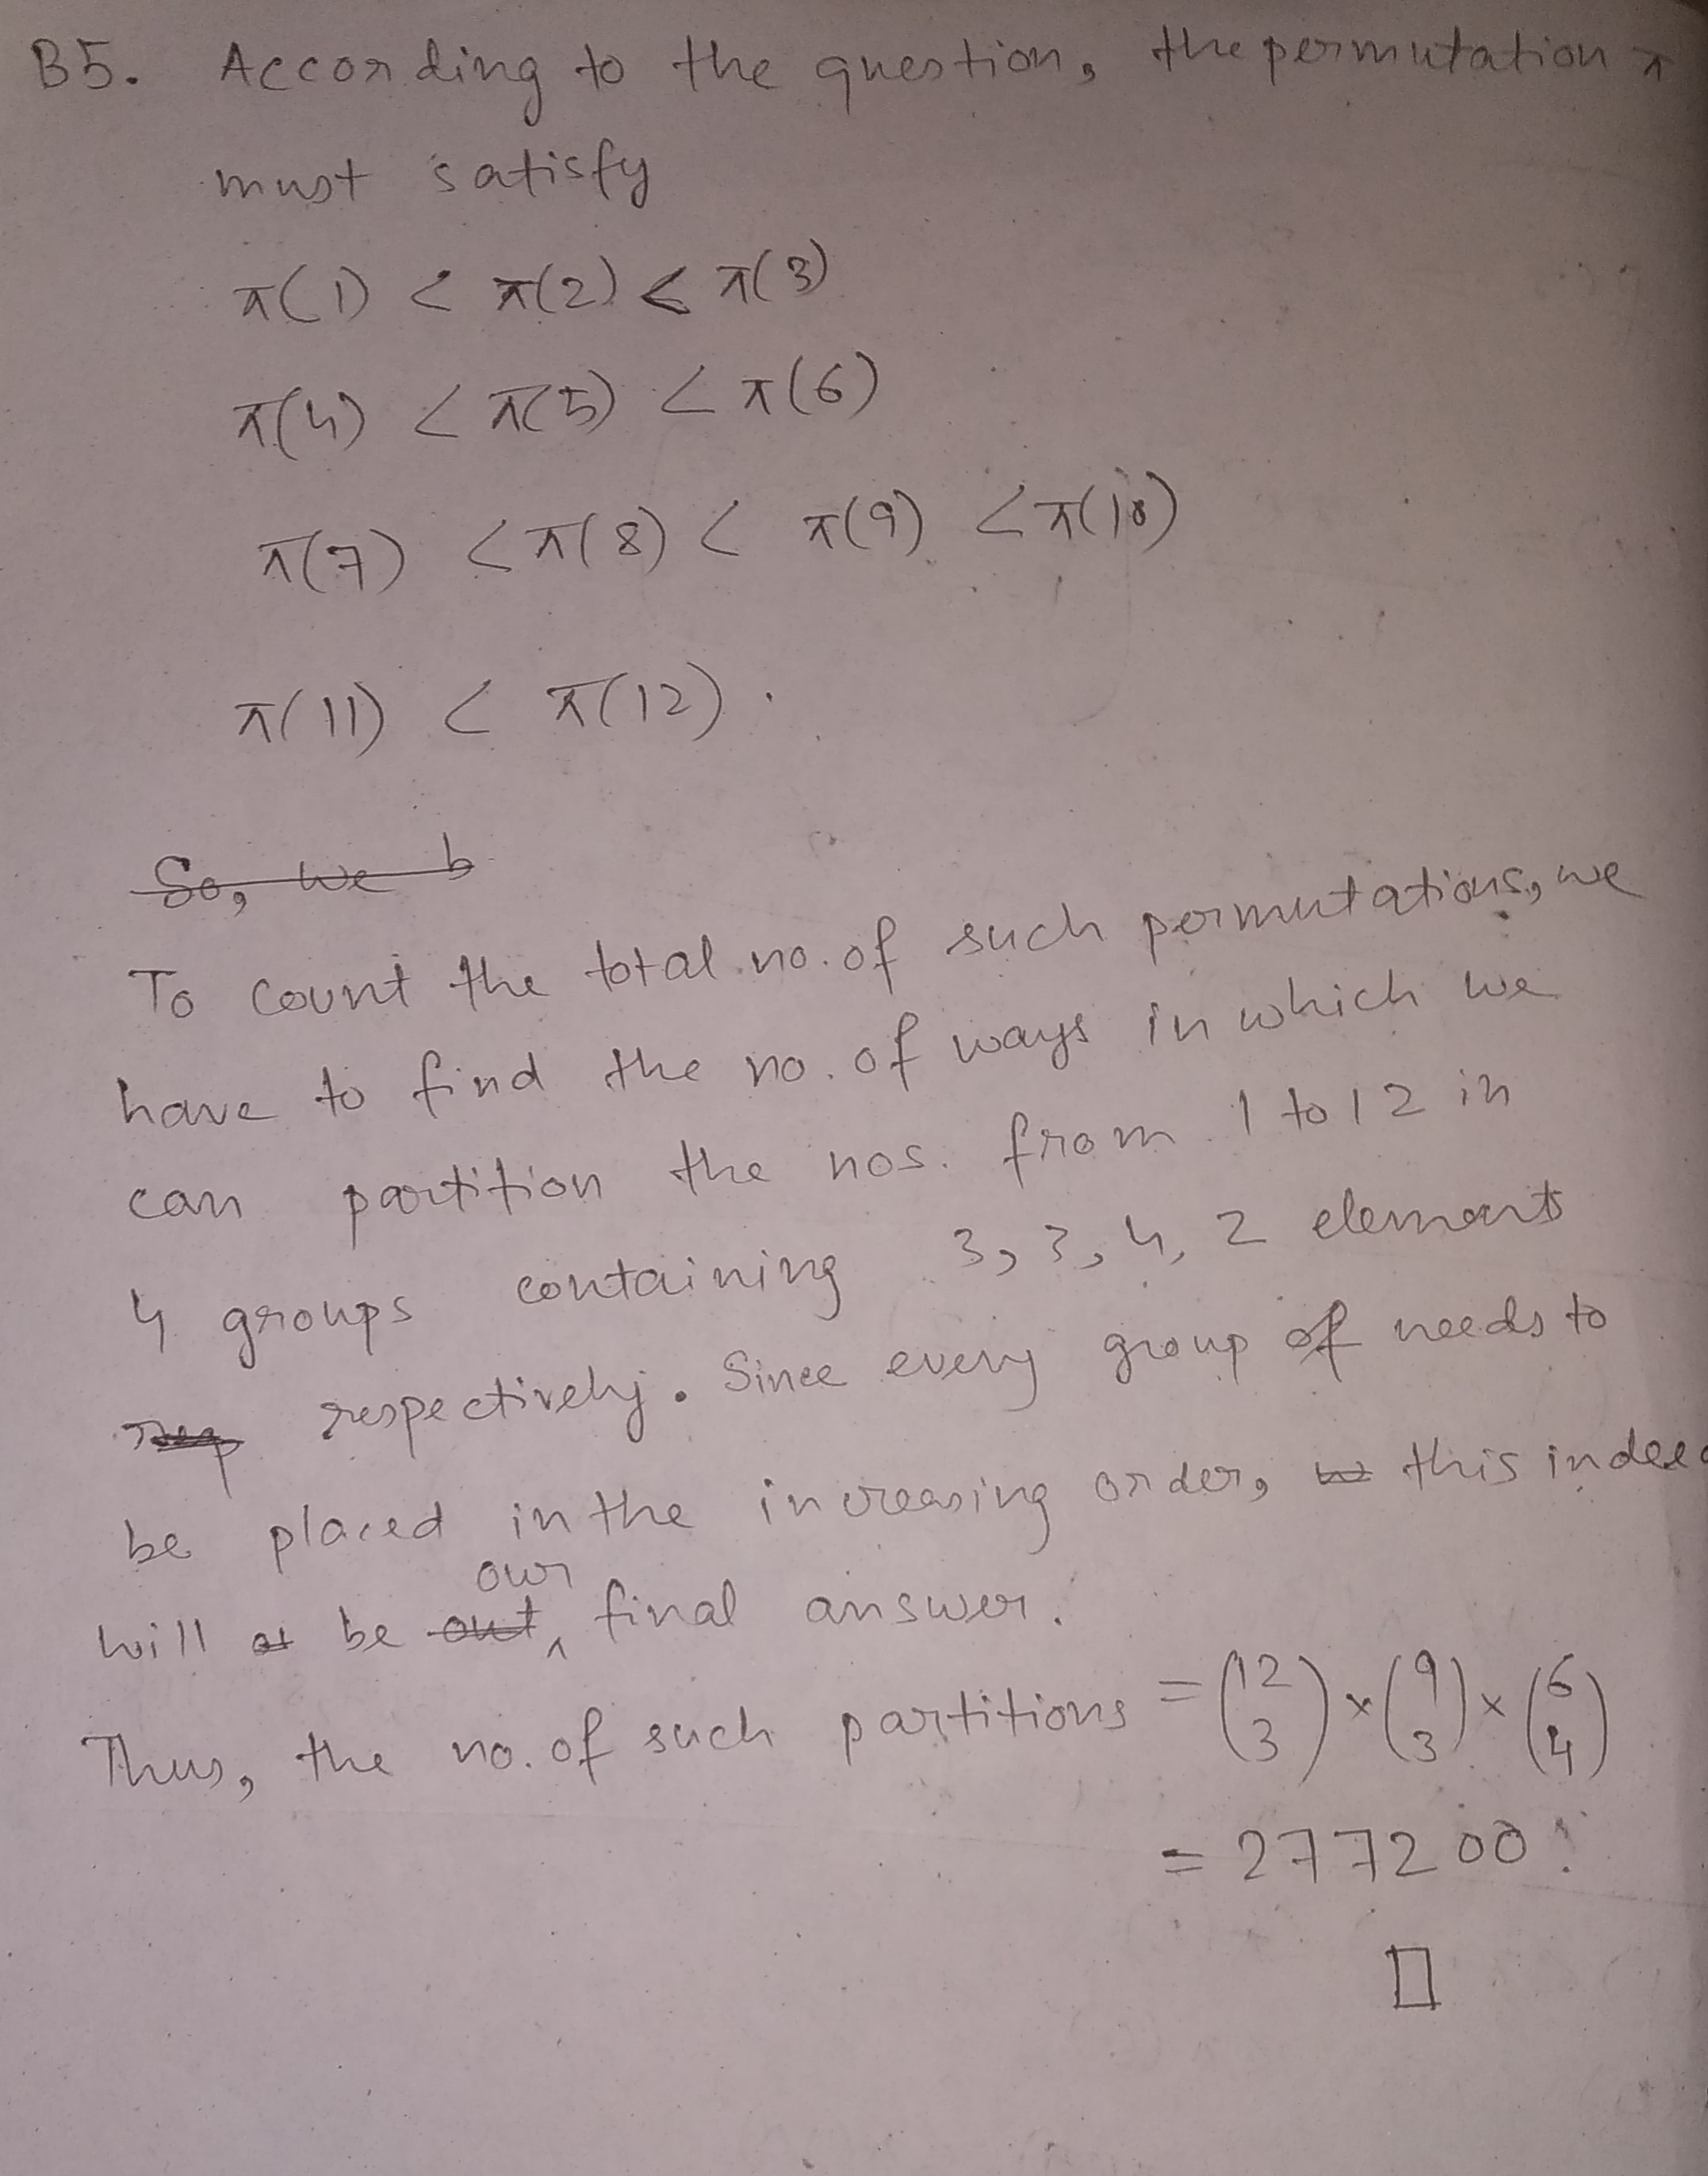 B5. According to the question, the permutation π
must satisfy
π(1) < π(2) < π(3)
π(4) < π(5) < π(6)
π(7) < π(8) < π(9) < π(10)
π(11) < π(12).
So, we b
To count the total no. of such permutations, we
have to find the no. of ways in which we
can partition the nos. from 1 to 12 in
4 groups containing 3, 3, 4, 2 elements
respectively. Since every group of needs to
be placed in the increasing order, this indeed
will be our final answer.
Thus, the no. of such partitions = (12 3) × (9 3) × (6 4)
= 277200.
□